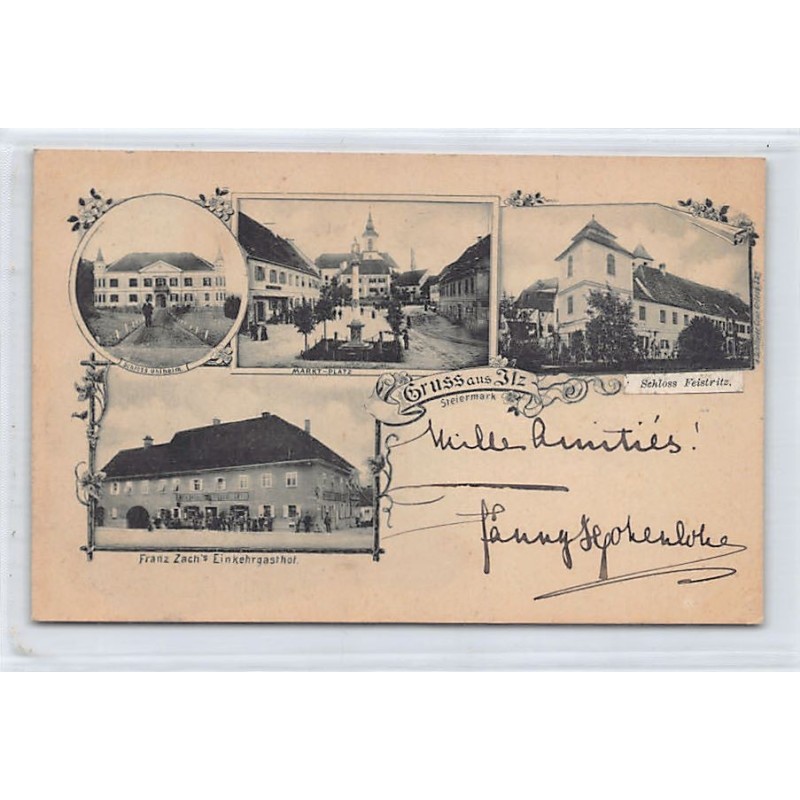 Schloss
MARKT-PLATZ
Gruss aus Ilz
Steiermark
Schloss Feistritz.
Mille Amitiés!
Fanny Hohenlohe
Franz Zach's Einkehrgasthof.